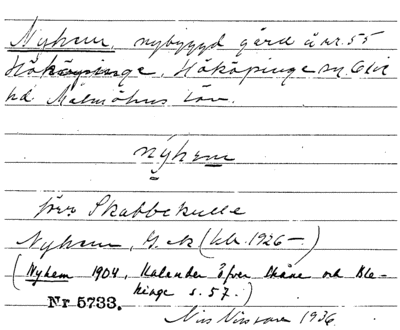 Nyhem, nybyggd gård å nr. 55
Hököpinge, Hököpinge sn. Oxie
hd. Malmöhus län.
nýhem
förr Skabbekulle
Nyhem, G. K (kbr. 1926–)
(Nyhem 1904, Kalender öfver Skåne och Ble-
kinge s. 57.)
Nr 5733.
Nils Nilsson 1936.